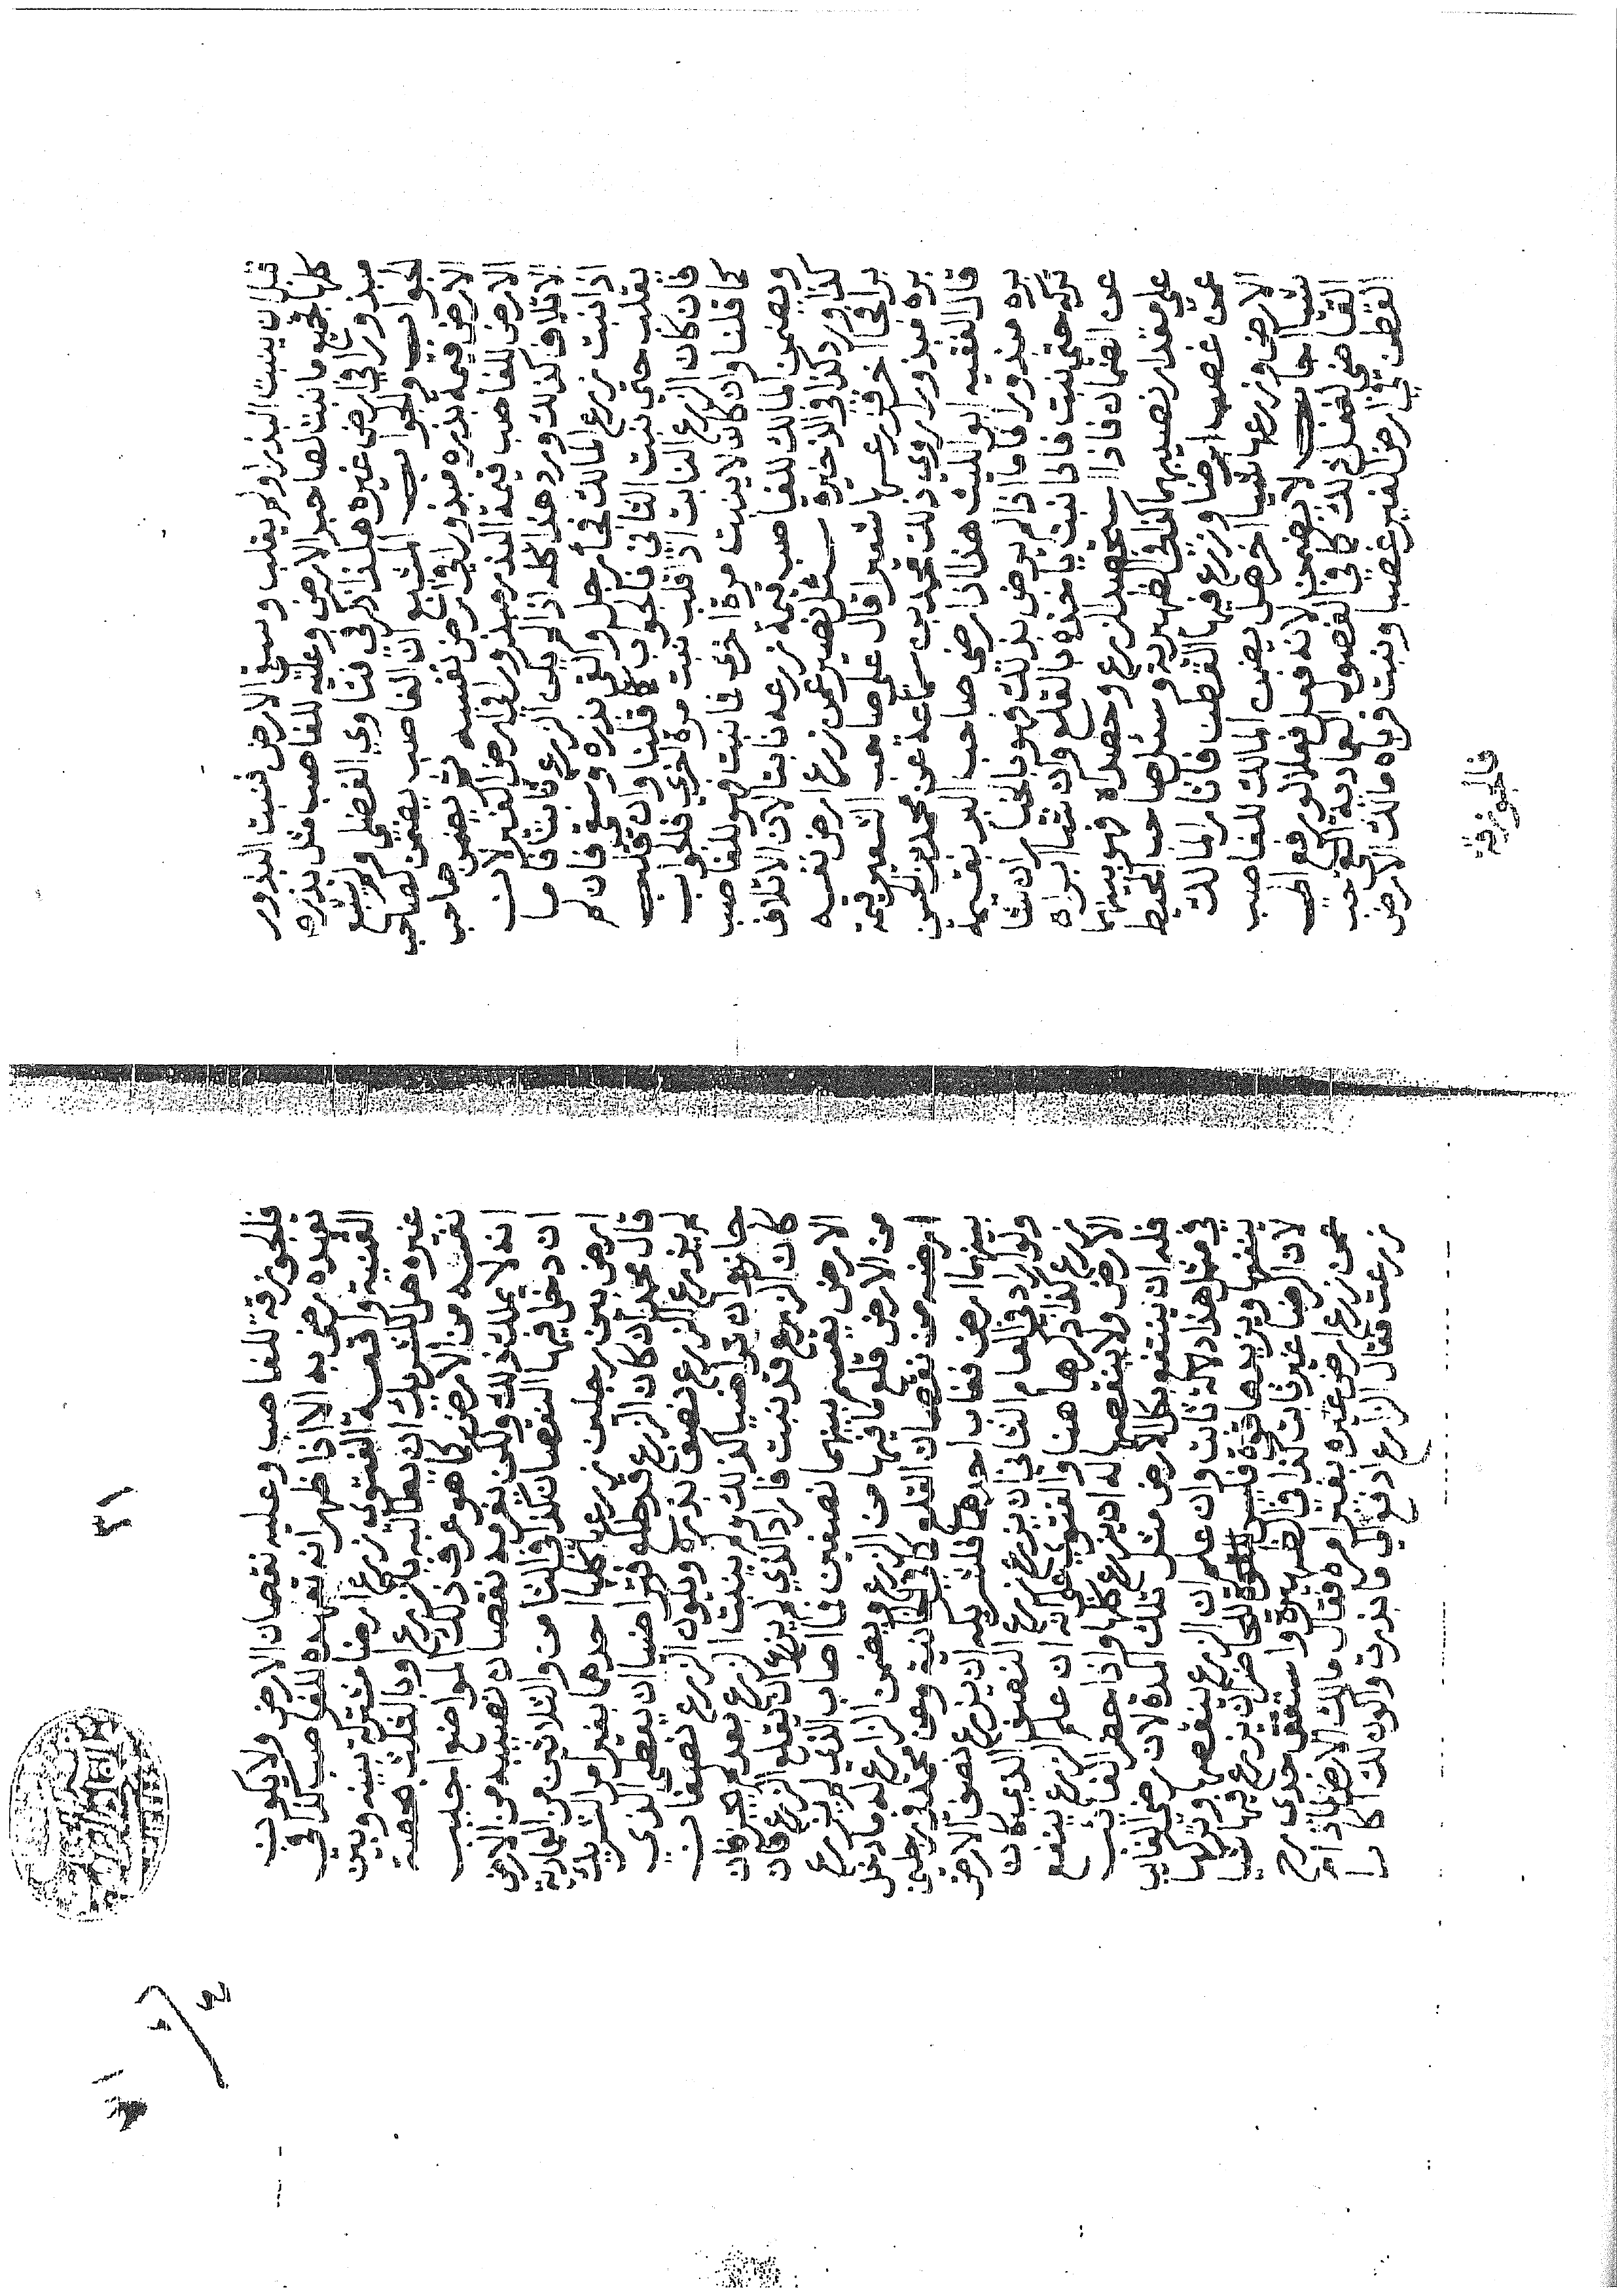 قبل ان ينبت البذر اولم يقلب وسقي الارض فنبت البذور
كلها فجميع ما نبت لصاحب الارض وعليه للغاصب مثل بذره
مبذورا في ارض غيره هكذا ذكر في فتاوي الفضلي ولم يشبع
الجواب والجواب المشبع ان الغاصب يضمن لصاحب
الارض قيمة بذره مبذورا في ارض نفسه ثم يضمن صاحب
الارض للغاصب قيمة البذر مبذورا في ارض الغير لان
الاتلاف كذلك ورد هذا كله اذا لم يكن الزرع نابتا فاما
اذا نبت زرع المالك فجاء رجل والقي بذره وسقي فان لم
يقلب حتي نبت الثاني فالجواب كما قلنا وان قلب
فان كان الزرع النابت اذا قلب نبت مرة اخري فالجواب
كما قلنا وان كان لا ينبت مرة اخري فما نبت فهو للغاصب
ويضمن المالك للغاصب قيمة زرعه نابتا لان الاتلاف
كذا ورد كذا في الذخيرة سئل نصير عمن زرع ارض نفسه
برا فجا اخر فزرعها شعيرا قال علي صاحب الشعير قيمة
بره مبذورا روي ذلك محمد بن سماعة عن محمد بن الحسن
قال الفقيه ابو الليث هذا اذا رضي صاحب البر بقيمة
بره مبذورا فاما اذا لم يرض بذلك فهو بالخيار ان شا
تركه حتي نبت فاذا نبت ياخذه بالقلع وان شا ابراه
عن الضمان فاذا استحصد الزرع وحصداه فهو بينهما
علي مقدار نصيبهما كذا في الظهيرية وسئل صاحب المحيط
عمن غصب ارضا وزرع فيها القطن فاثار المالك
الارض وزرعها شيا اخر هل يضمن المالك للغاصب
شيا اجاب لا يضمن لانه فعل فعلا لو رفع الي
القاضي لفعل ذلك كما في الفصول العمادية
القطن في ارض الغير غصبا ونبت فرباه مالك الارض
فالجوزقة
فالجوزقة للغاصب وعليه نقصان الارض ولا يكون
تعهده رضي به الا اذا ظهر انه تعهده للغاصب كذا في
القنية واقعة الفتوي زرع ارضا مشتركة بينه وبين
غيره هل للشريك ان يطالبه بالربع او بالثلث بحصة
نفسه من الارض كما هو عرف ذلك المواضع اجيب
انه لا يملك ذلك ولكن يغرمه نقصان نصيبه من الارض
ان دخل فيها النقصان كذا في الثامن والثلاثين من العمادية
ارض بين رجلين زرعها كلها احدهما بغير امر الشريك
قال محمد ان كان الزرع قد طلع فتراضيا ان يعطي الذي
لم يزرع الزرع نصف بذره ويكون الزرع نصفان
جاز وان تراضيا كذلك ولم ينبت الزرع بعد لم يجز فان
كان الزرع قد نبت فاراد الذي لم يزرع ان يقلع الزرع فان
الارض يقسم بينهما نصفين فما اصاب الذي لم يزرع
من الارض قلع ما فيها من الزرع ويضمن الزارع له ما دخل
ارضه من نقصان القلع كما في الخانية وعن محمد في رجلين
بينهما ارض فغاب احدهما فلشريكه ان يزرع نصف الارض
ولو اراد في العام الثاني ان يزرع زرع النصف الذي كان
زرع كذا ذكر هاهنا والفتوي علي انه ان علم ان الزرع ينفع
الارض ولا ينقصها له ان يزرع كلها واذا حضر الغايب
فله ان ينتفع بكل الارض مثل تلك المدة لان رضي الغايب
في مثل هذا دلالة ثابت وان علم ان الزرع ينقصها وتركها
ينفعها ويزيدها قوة فليس للحاضر ان يزرع فيها شيا
لان الرضا غير ثابت كذا في الظهيرية واستفتي جدي رح
عمن زرع ارض غيره بغير امره فقال مالك الارض لماذا
زرعت فقال الزارع ادفع الي ما بذرت واكون لك اكارا
٣١